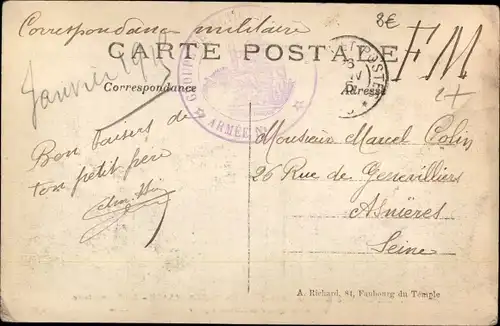 Correspondance militaire
8€
CARTE POSTALE
FM
Janvier
Correspondance
Adresse
ARMÉE
2+
Bons baisers de
ton petit frère
Monsieur Marcel Colin
26 Rue de Genevilliers
Asnières
Seine
A. Richard, 81, Faubourg du Temple